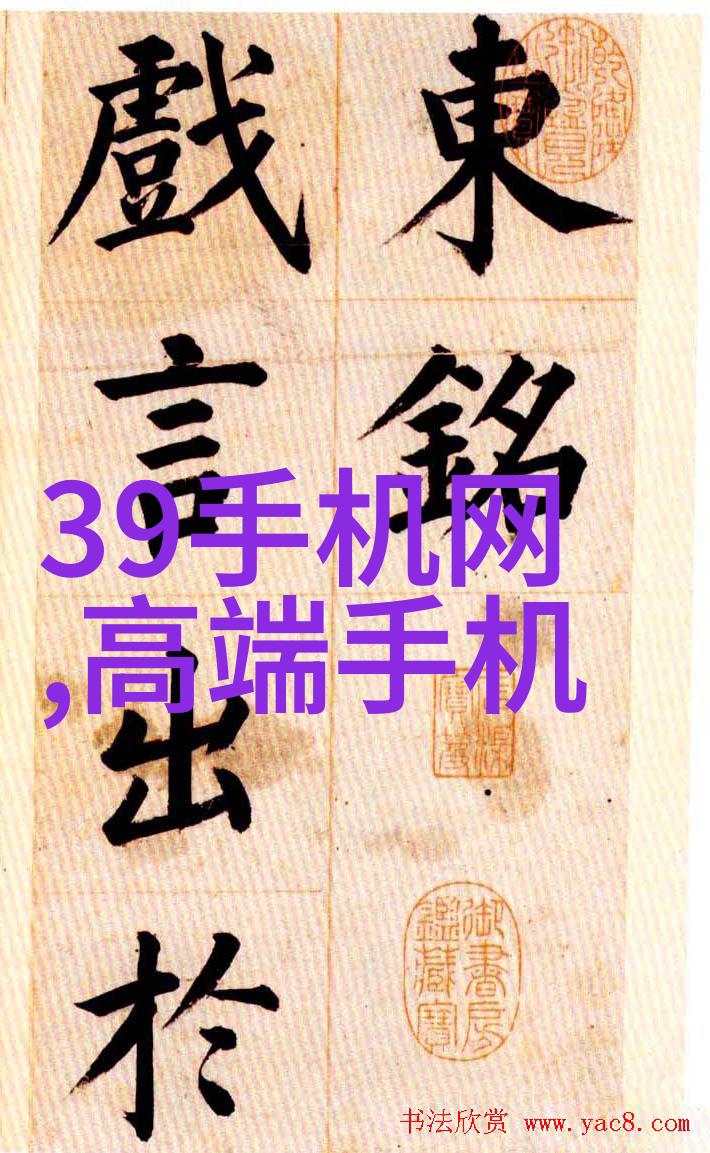 東銘
戲言出於
39手机网
,高端手机
御書房
鑑藏寶
书法欣赏 www.yac8.com